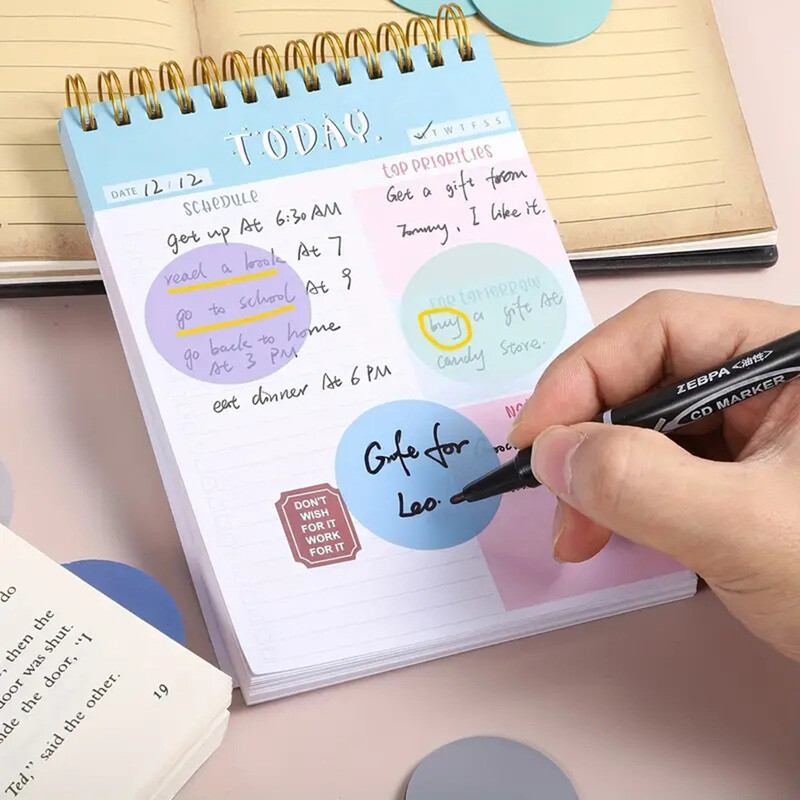 TODAY.
T W T F S S
DATE 12 / 12
SCHEDULE
get up At 6:30 AM
read a book At 7
go to school At 9
go back to home
At 3 PM
eat dinner At 6 PM
TOP PRIORITIES
Get a gift from
Tommy, I like it.
FOR TOMORROW
buy a gift At
candy store.
Gife for
Leo.
DON'T
WISH
FOR IT
WORK
FOR IT
ZEBPA <油性>
CD MARKER
do
, then the
door was shut.
side the door, "I
Ted," said the other.
19